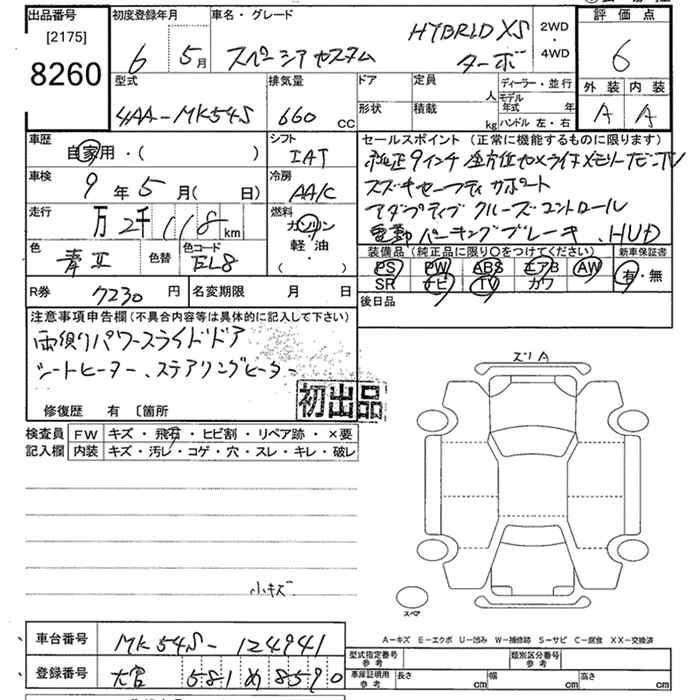 出品番号 初度登録年月 車名・グレード 評価点
[2175]
8260
6 5月 スペーシアカスタム HYBRID XS ターボ 2WD・4WD 6
型式 排気量 ドア 定員 人 ディーラー・並行 外装 内装
4AA-MK54S 660 CC 形状 積載 kg モデル年式 年 ハンドル 左・右 A A
車歴 自家用・( ) シフト IAT
車検 9年5月( 日) 冷房 AA/C
走行 万2千118km 燃料 ガソリン 軽油・( )
色 青II 色替 色コード EL8
R券 7230円 名変期限 月 日
セールスポイント (正常に機能するものに限ります)
純正9インチ 全方位カメラ付メモリーナビ・TV
スズキセーフティサポート
アダプティブクルーズコントロール
電動パーキングブレーキ、HUD
装備品 (純正品に限り○をつけてください) 新車保証書
PS PW ABS エアB AW 有・無
SR ナビ TV カワ
後日品
注意事項申告欄(不具合内容等は具体的に記入して下さい)
両側パワースライドドア
シートヒーター、ステアリングヒーター
初出品
修復歴 有 〔箇所
検査員 FW キズ・飛石・ヒビ割・リペア跡・×要
記入欄 内装 キズ・汚レ・コゲ・穴・スレ・キレ・破レ
スリA
小キズ
スペア
A-キズ E-エクボ U-凹み W-補修跡 S-サビ C-腐食 XX-交換済
車台番号 MK54S-124941
登録番号 大宮 581 め 8590
型式指定番号 参考 類別区分番号 参考
車庫証明用 参考 長さ cm 幅 cm 高さ cm